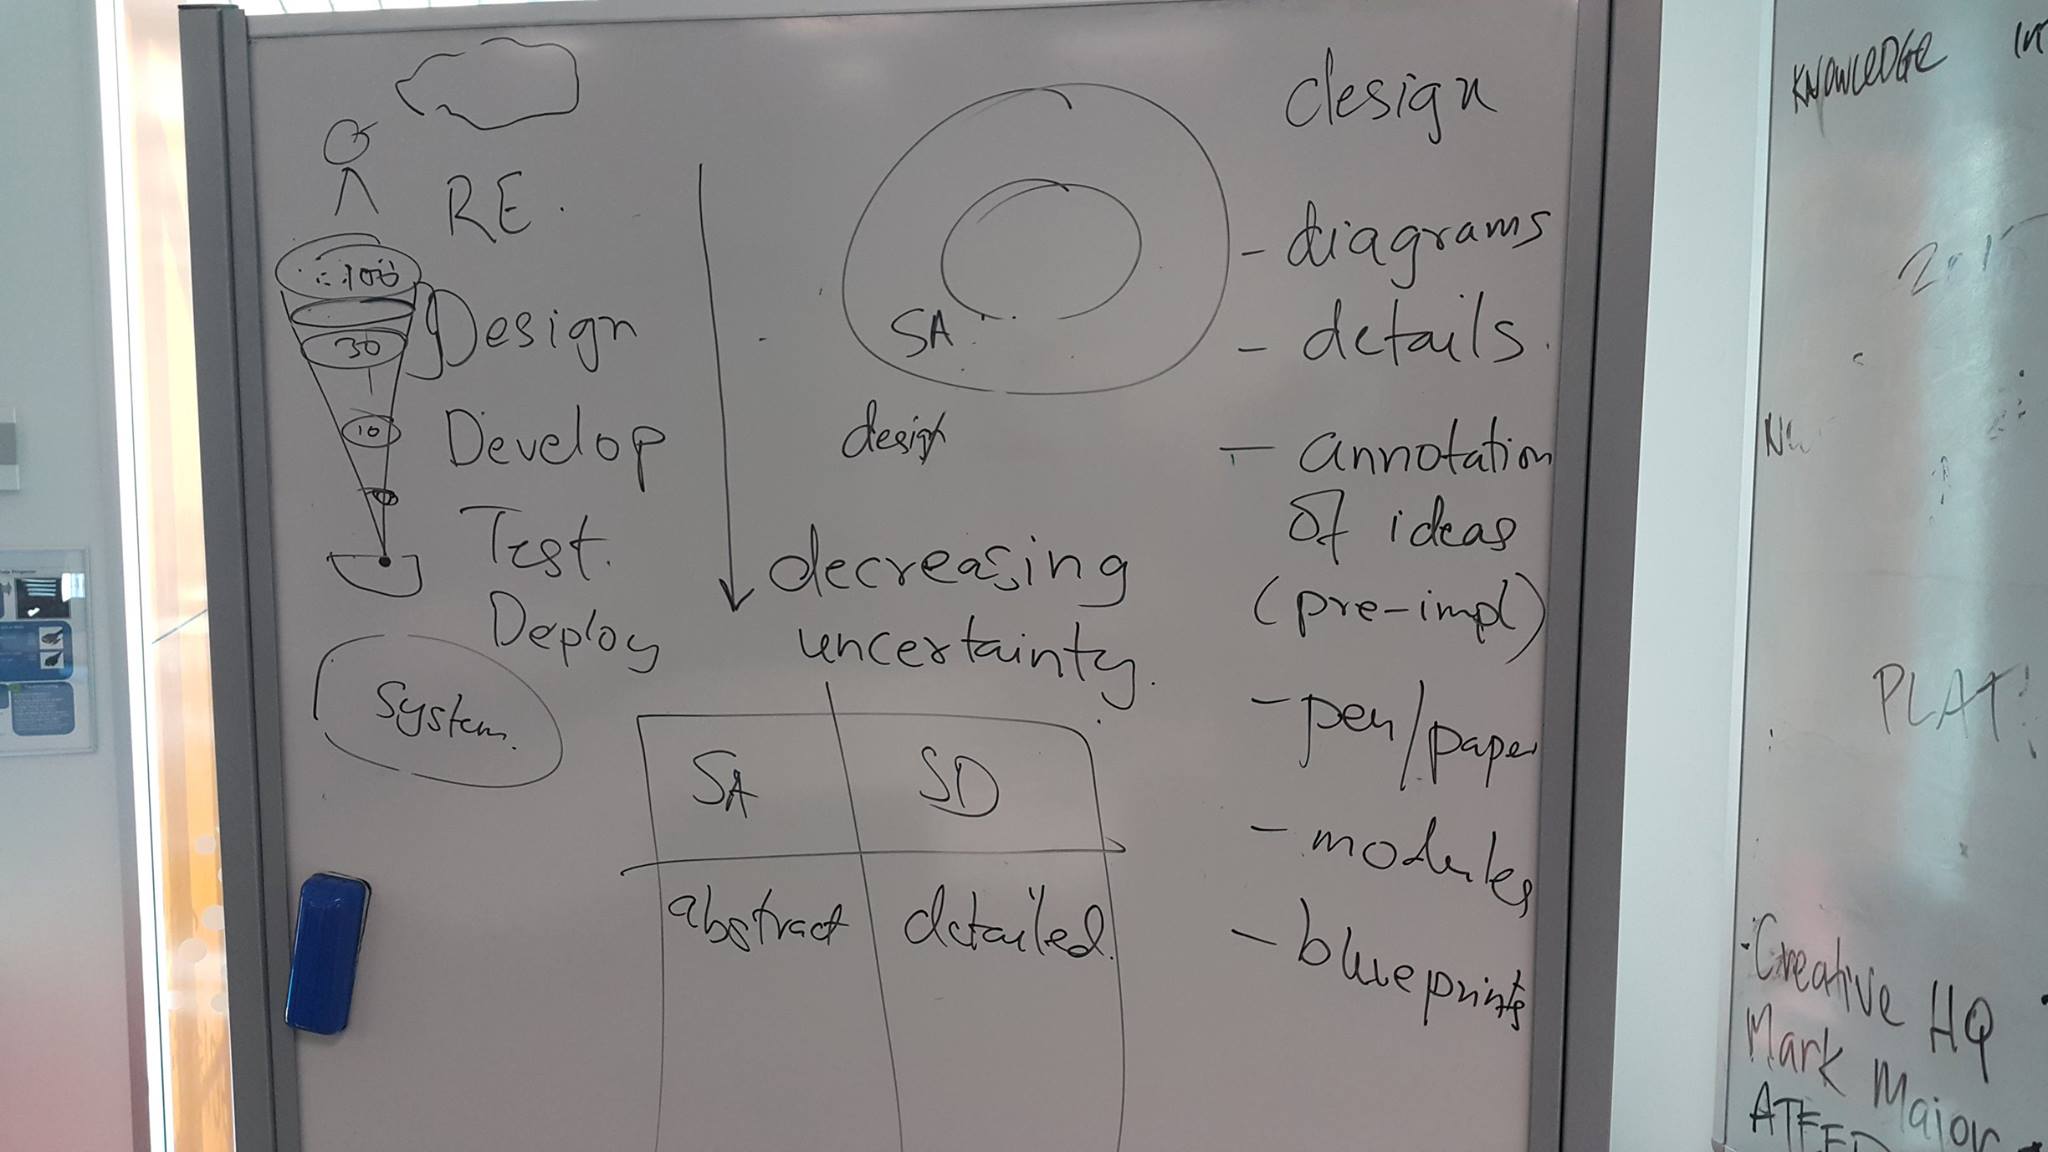 RE.
100
Design
30
Develop
10
Test.
Deploy
System.
SA
design
decreasing
uncertainty.
SA SD
abstract detailed.
design
- diagrams
- details.
- annotation
of ideas
(pre-impl)
- pen/paper
- modules
- blueprints
KNOWLEDGE
PLAT
Creative HQ
Mark Major